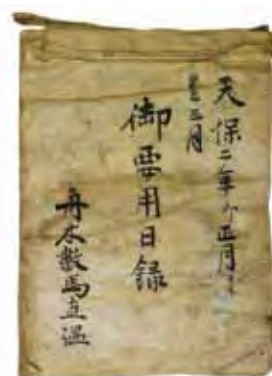 天保二年卯正月
至三月
御要用日録
舟木數馬直温